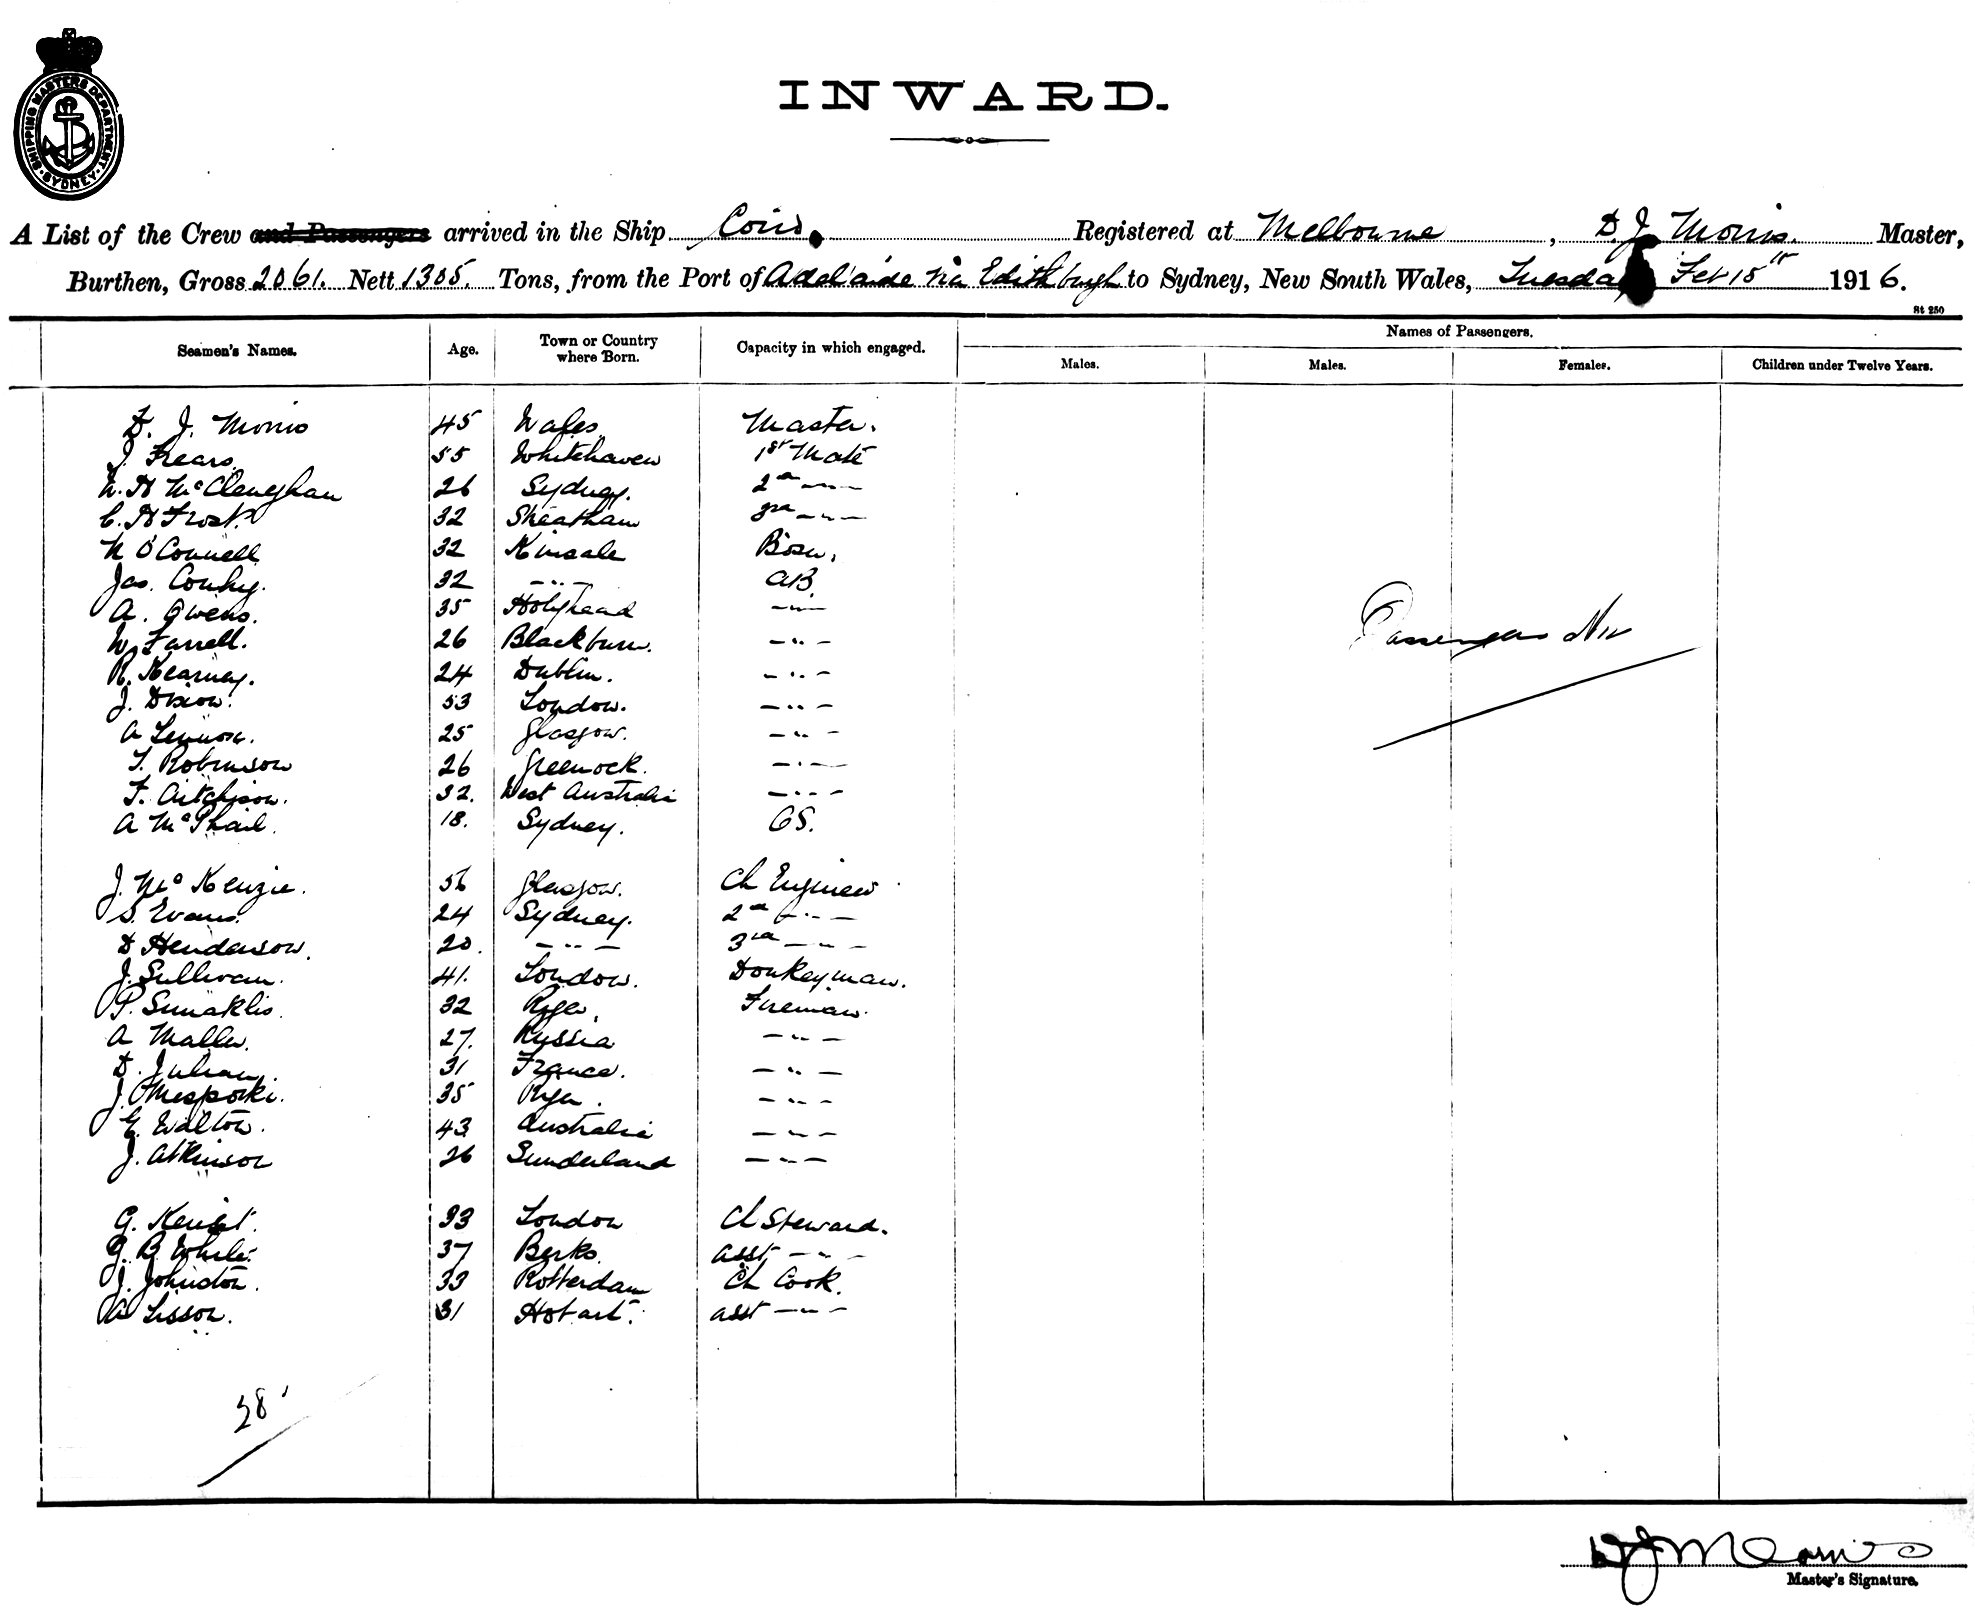 SHIPPING MASTERS DEPARTMENT · SYDNEY ·
INWARD.
A List of the Crew and Passengers arrived in the Ship Registered at Melbourne, D. J. Morris. Master,
Burthen, Gross 2061. Nett 1305. Tons, from the Port of Adelaide via Edithburgh to Sydney, New South Wales, Tuesday Feb 15th 1916.
St 250
Seamen's Names. Age. Town or Country where Born. Capacity in which engaged. Names of Passengers.
Males. Males. Females. Children under Twelve Years.
D. J. Morris 45 Wales Master.
J. Frears 55 Whitehaven 1st Mate
McClenaghan 26 Sydney. 2nd -"-
C. H Frost. 32 3rd -"-
O'Connell 32 Kinsale Bosn.
Jas. 32 -"- AB.
A. Owens. 35 Holyhead -"-
W. Farrell. 26 Blackburn. -"-
R. Kearney. 24 Dublin. -"-
J. Dixon. 53 London. -"-
A Lennox. 25 Glasgow. -"-
T. Robinson 26 Greenock. -"-
F. Aitchison. 32. West Australia -"-
A McPhail. 18. Sydney. OS.
Passengers Nil
J. McKenzie. 56 Glasgow. Ch Engineer
S. Evans. 24 Sydney. 2nd -"-
D Henderson. 20. -"- 3rd -"-
J. Sullivan. 41. London. Donkeyman.
P. 32 Fireman.
A 27. Russia -"-
D. Julian. 31 France. -"-
J. 35 -"-
E. Walton. 43 Australia -"-
J. Atkinson 26 Sunderland -"-
G. 33 London Ch Steward.
G. B White. 37 Berks. asst. -"-
J. Johnston. 33 Rotterdam Ch Cook.
A Lisson. 31 Hobart. asst -"-
28
D J Morris
Master's Signature.